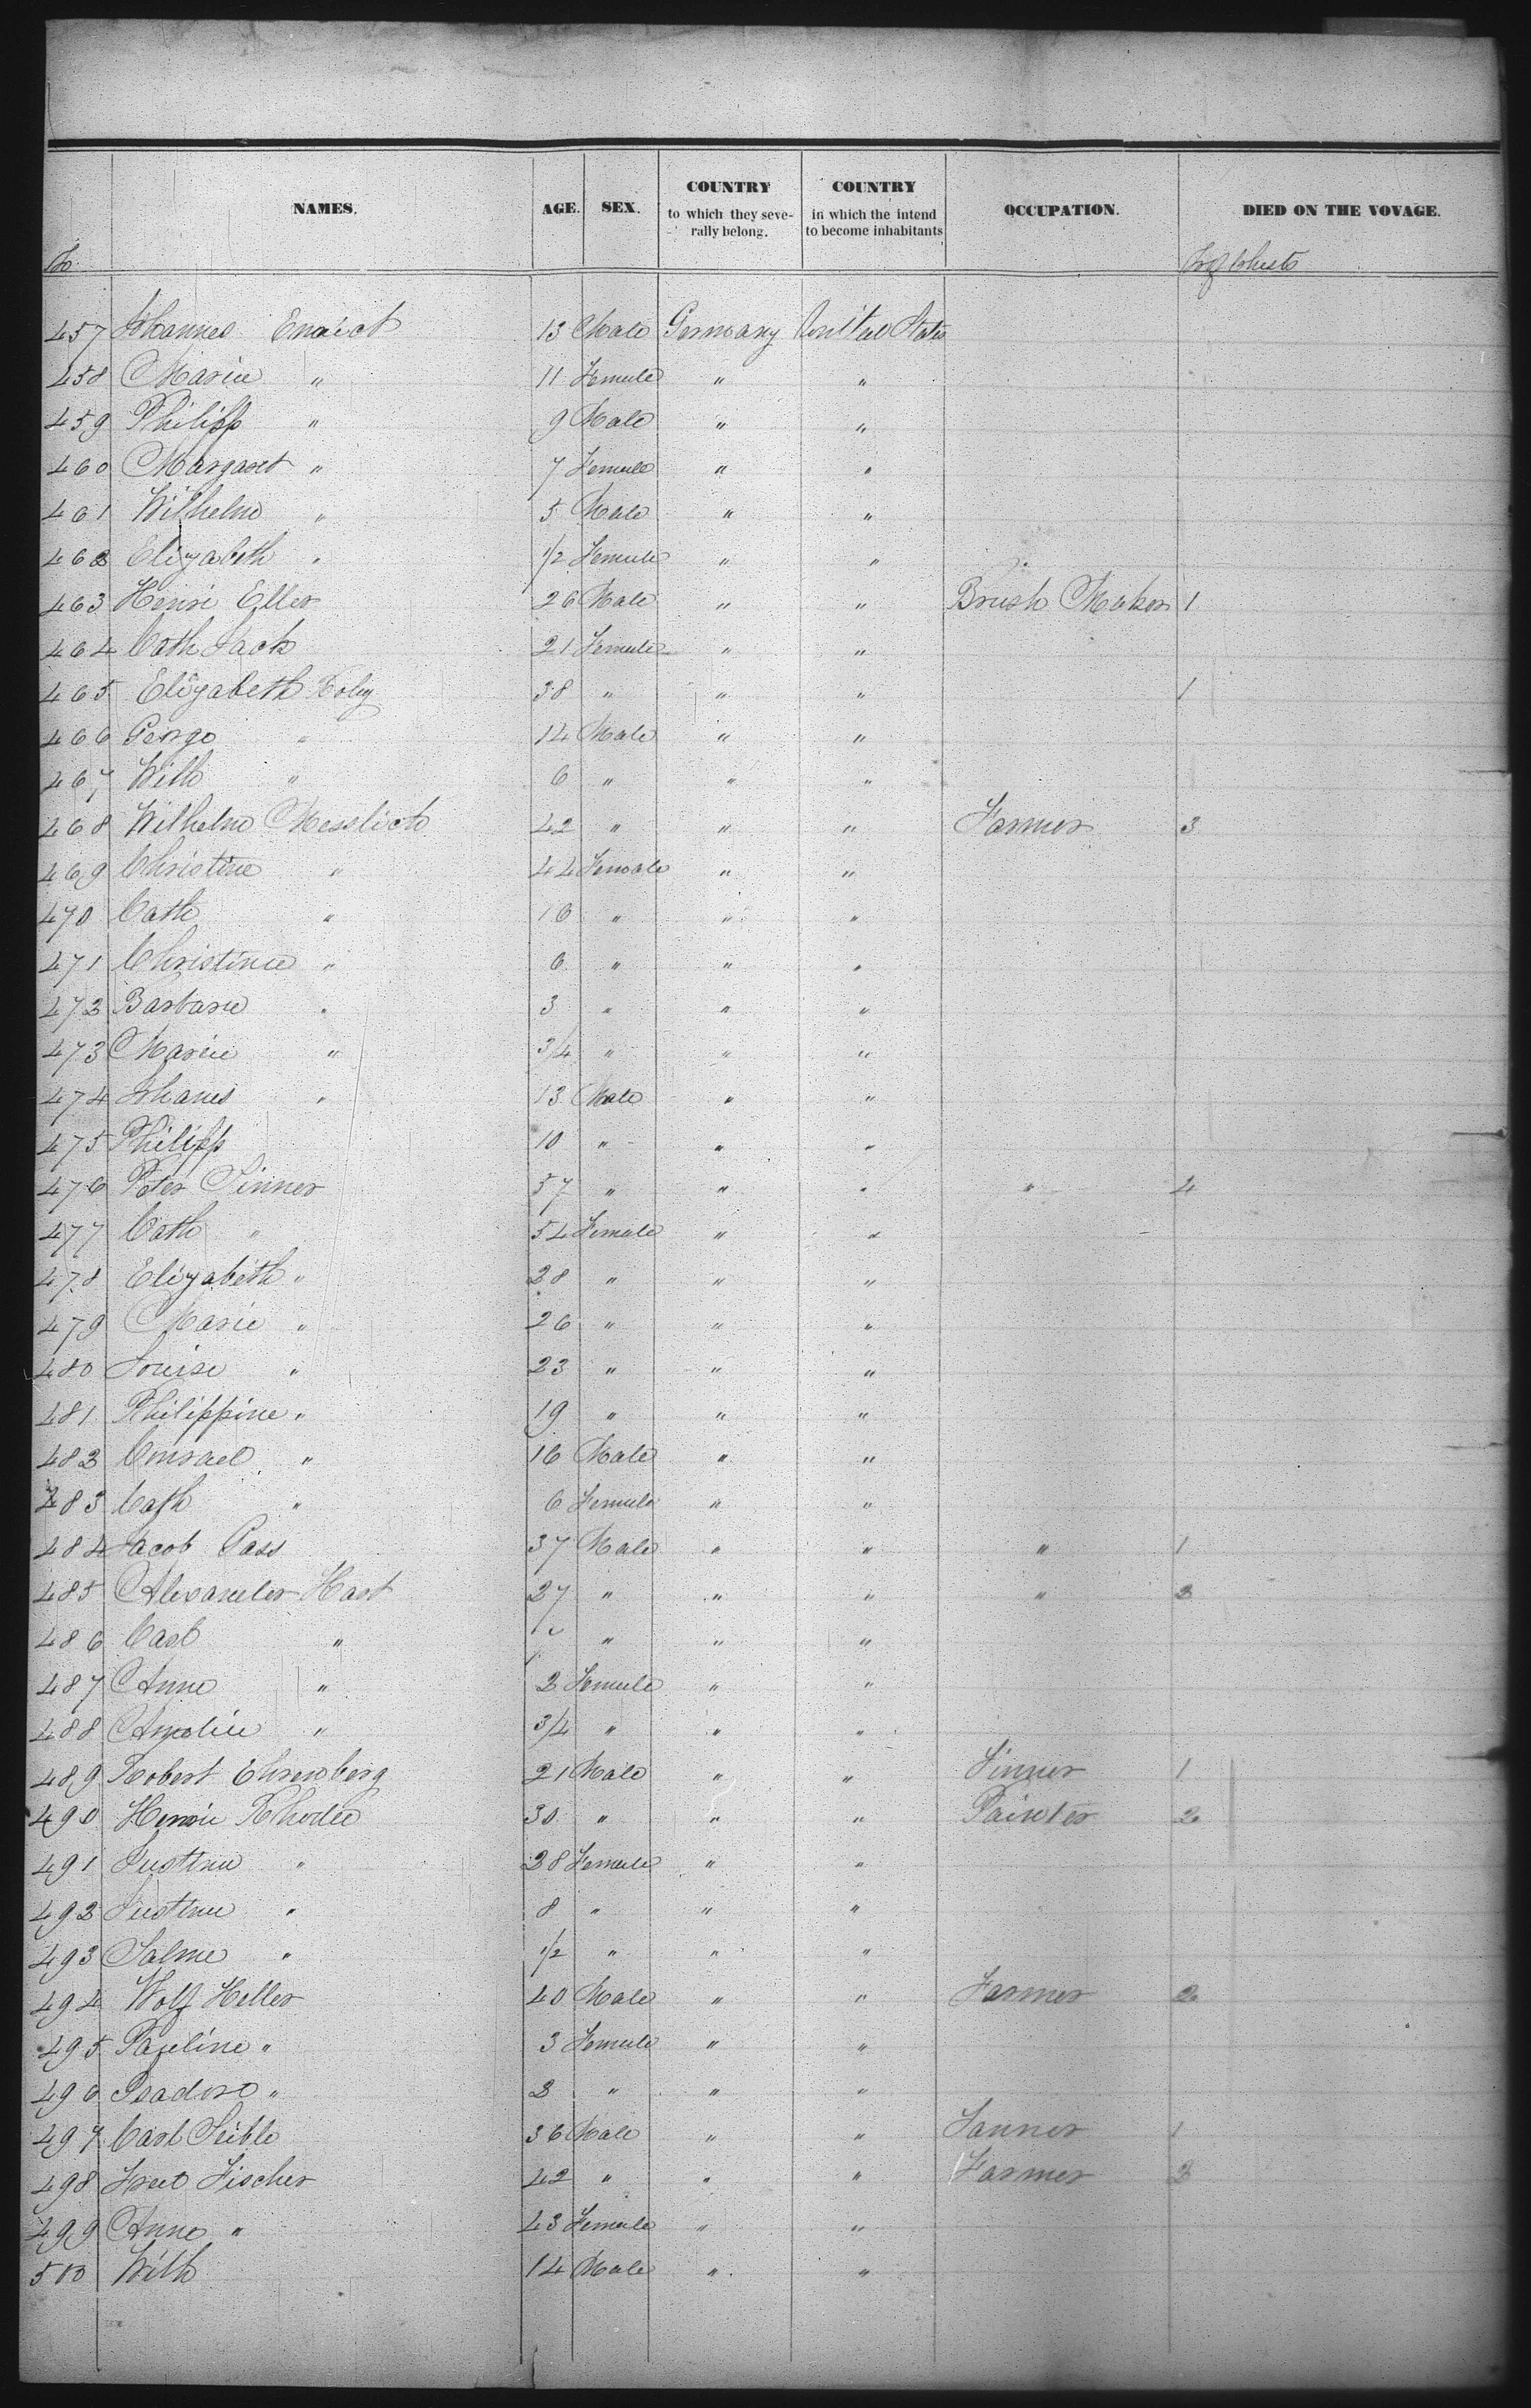 NAMES. AGE. SEX. COUNTRY to which they severally belong. COUNTRY in which the intend to become inhabitants OCCUPATION. DIED ON THE VOYAGE.
No. No of Chests
457 Johannes Emrich 13 Male Germany United States
458 Marie " 11 Female " "
459 Philipp " 9 Male " "
460 Margaret " 7 Female " "
461 Wilhelm " 5 Male " "
462 Elizabeth " 1/2 Female " "
463 Henri Eller 26 Male " " Brush Maker 1
464 Cath Sack 21 Female " "
465 Elizabeth Koby 38 " " " 1
466 George " 14 Male " "
467 Wilh " 6 " " "
468 Wilhelm Messlich 42 " " " Farmer 3
469 Christine " 44 Female " "
470 Cath " 16 " " "
471 Christine " 6 " " "
472 Barbara " 3 " " "
473 Marie " 3/4 " " "
474 Johanes " 13 Male " "
475 Philipp 10 " " "
476 Peter Sinner 57 " " " " 4
477 Cath " 54 Female " "
478 Elizabeth " 28 " " "
479 Marie " 26 " " "
480 Louise " 23 " " "
481 Philippine " 19 " " "
482 Conrad " 16 Male " "
483 Cath " 6 Female " "
484 Jacob Pass 37 Male " " " 1
485 Alexander Hart 27 " " " " 2
486 Carl " " " "
487 Anna " 2 Female " "
488 Amelie " 3/4 " " "
489 Robert Ehrenberg 21 Male " " Tinner 1
490 Henrie Rhode 30 " " " Painter 2
491 Justine " 28 Female " "
492 Justine " 8 " " "
493 Salme " 1/2 " " "
494 Wolf Heller 40 Male " " Farmer 2
495 Pauline " 3 Female " "
496 Isadore " 2 " " "
497 Carl Seible 36 Male " " Tanner 1
498 Fred Fischer 42 " " " Farmer 2
499 Anna " 43 Female " "
500 Wilh 14 Male " "